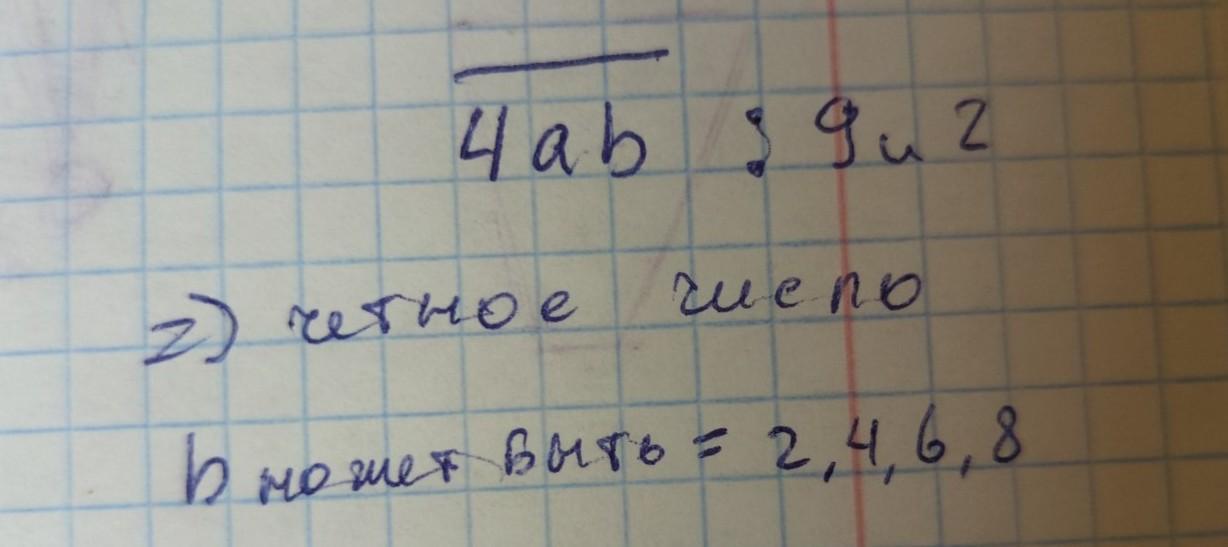 4ab ⋮ 9 и 2
=) четное число
b может быть = 2, 4, 6, 8